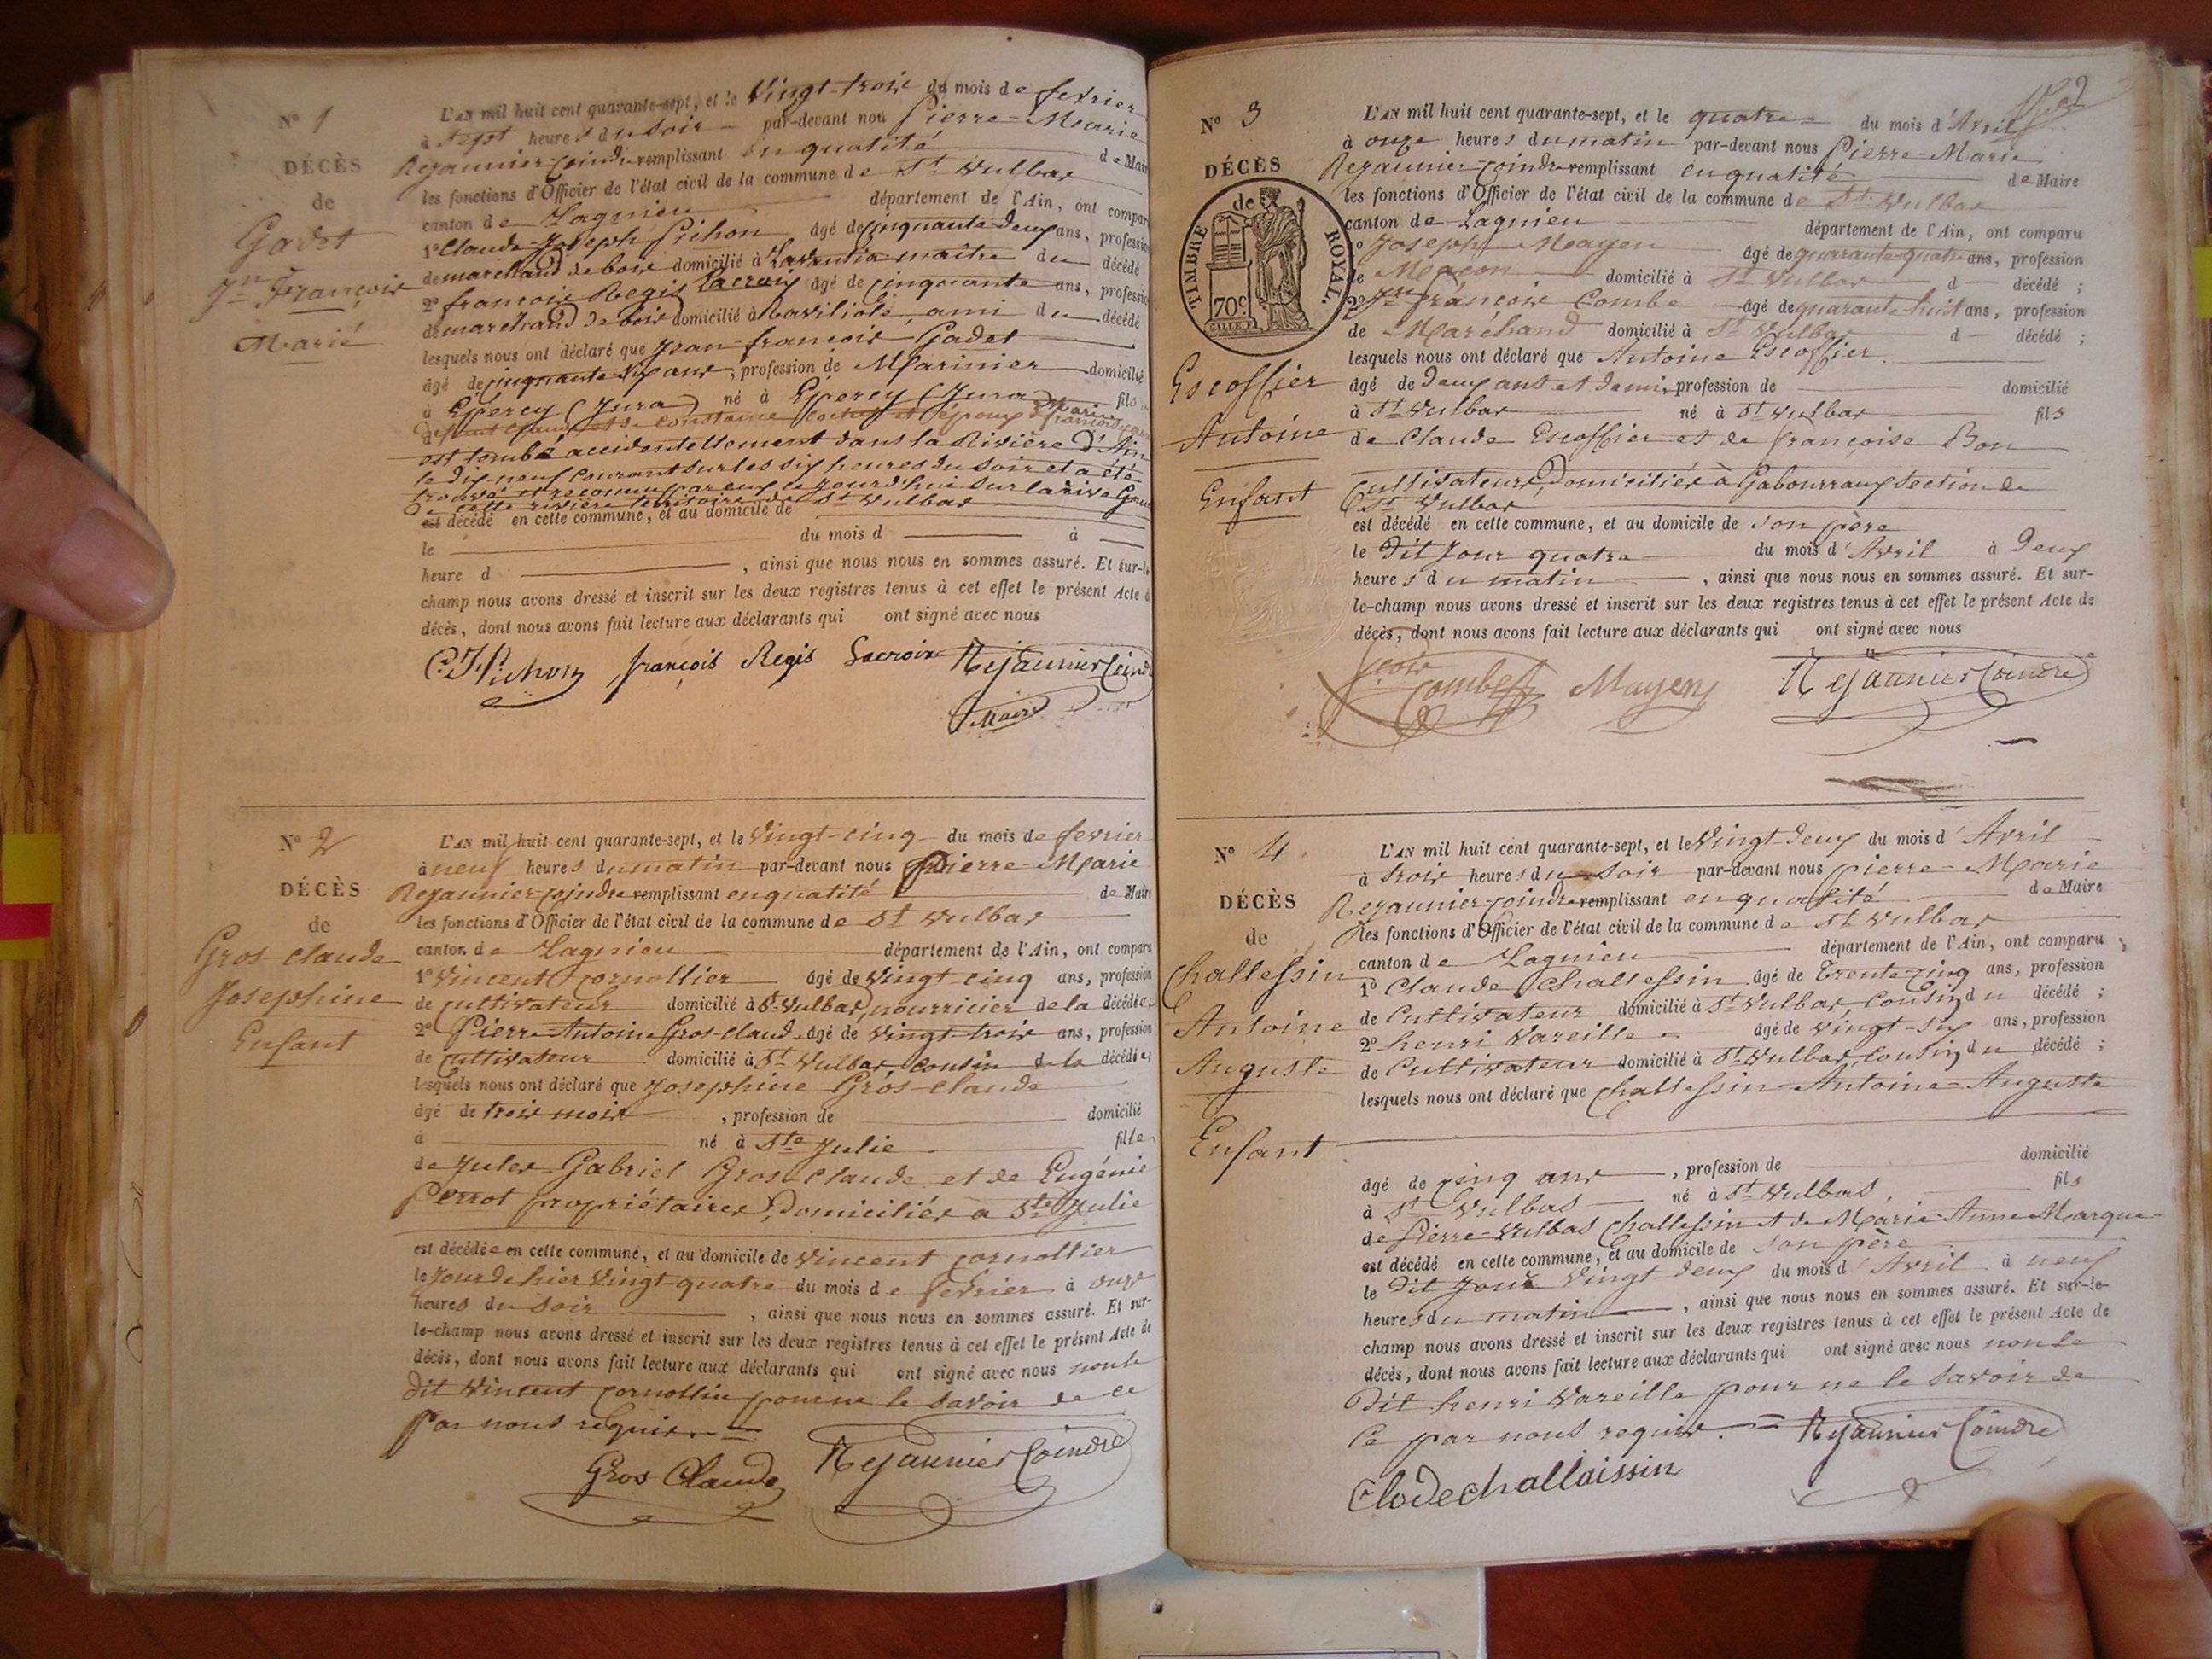 N° 1
DÉCÈS
de
Gadet
Jn François
Marié
L'AN mil huit cent quarante-sept, et le Vingt-trois du mois de fevrier
à Sept heures du soir par-devant nous Pierre-Marie
Rejaunier-Coindre remplissant en qualité de Maire
les fonctions d'Officier de l'état civil de la commune de St Vulbas
canton de Lagnieu département de l'Ain, ont comparu
1° Claude Joseph Pichon âgé de cinquante deux ans, profession
de marchand de bois domicilié à Lavantia maître du décédé
2° francois Regis Lacroix âgé de cinquante ans, profession
de marchand de bois domicilié à ami du décédé
lesquels nous ont déclaré que Jean-francois Gadet
âgé de cinquante six ans, profession de Marinier domicilié
à Epercy (Jura) né à Epercy (Jura) fils
est tombé accidentellement dans la Rivière d'Ain
le dix-neuf courant sur les six heures du soir et a été
trouvé et reconnu par eux ce jourd'hui sur la rive Gauche
de cette rivière territoire de St Vulbas
est décédé en cette commune, et au domicile de
le du mois d à
heure d , ainsi que nous nous en sommes assuré. Et sur-le
champ nous avons dressé et inscrit sur les deux registres tenus à cet effet le présent Acte d
décès, dont nous avons fait lecture aux déclarants qui ont signé avec nous
C. J. Pichon françois Regis Lacroix Rejaunier Coindre
Maire
N° 2
DÉCÈS
de
Gros-claude
Josephine
Enfant
L'AN mil huit cent quarante-sept, et le Vingt-cinq du mois de fevrier
à neuf heures du matin par-devant nous Pierre-Marie
Rejaunier-Coindre remplissant en qualité de Maire
les fonctions d'Officier de l'état civil de la commune de St Vulbas
canton de Lagnieu département de l'Ain, ont comparu
1° Vincent Cornollier âgé de Vingt cinq ans, profession
de Cultivateur domicilié à St Vulbas, nourricier de la décédée;
2° Pierre-Antoine Gros-claude âgé de Vingt-trois ans, profession
de Cultivateur domicilié à St Vulbas cousin de la décédée;
lesquels nous ont déclaré que Josephine Gros-claude
âgé de trois mois , profession de domicilié
à né à Ste Julie fille
de Jules-Gabriel Gros-claude et de Eugénie
Perrot propriétaires, Domiciliés a Ste Julie
est décédée en cette commune, et au domicile de Vincent Cornollier
le Jour de hier Vingt-quatre du mois de fevrier à onze
heures du soir , ainsi que nous nous en sommes assuré. Et sur-
le-champ nous avons dressé et inscrit sur les deux registres tenus à cet effet le présent Acte de
décès, dont nous avons fait lecture aux déclarants qui ont signé avec nous non le
dit Vincent Cornollier pour ne le savoir de ce
par nous requis.
Gros Claude Rejaunier Coindre
N° 3
DÉCÈS
de
TIMBRE ROYAL.
70c
Escoffier
Antoine
Enfant
L'AN mil huit cent quarante-sept, et le quatre du mois d'Avril
à onze heures du matin par-devant nous Pierre-Marie
Rejaunier-Coindre remplissant en qualité de Maire
les fonctions d'Officier de l'état civil de la commune de St Vulbas
canton de Lagnieu département de l'Ain, ont comparu
1° Joseph Mayen âgé de quarante-quatre ans, profession
de Maçon domicilié à St Vulbas d décédé ;
2° Jn françois Combe âgé de quarante huit ans, profession
de Maréchand domicilié à St Vulbas d décédé ;
lesquels nous ont déclaré que Antoine Escoffier
âgé de Deux ans et demi, profession de domicilié
à St Vulbas né à St Vulbas fils
de Claude Escoffier et de françoise Bon
Cultivateurs, Domiciliés à Gabourraux Section de
St Vulbas
est décédé en cette commune, et au domicile de son père
le Dit Jour quatre du mois d'Avril à Deux
heures du matin , ainsi que nous nous en sommes assuré. Et sur-
le-champ nous avons dressé et inscrit sur les deux registres tenus à cet effet le présent Acte de
décès, dont nous avons fait lecture aux déclarants qui ont signé avec nous
Combe Mayen Rejaunier Coindre
N° 4
DÉCÈS
de
Challessin
Antoine
Auguste
Enfant
L'AN mil huit cent quarante-sept, et le Vingt-deux du mois d'Avril
à trois heures du soir par-devant nous pierre-Marie
Rejaunier-Coindre remplissant en qualité de Maire
les fonctions d'Officier de l'état civil de la commune de St Vulbas
canton de Lagnieu département de l'Ain, ont comparu ;
1° Claude Challessin âgé de Trente-cinq ans, profession
de Cultivateur domicilié à St Vulbas, Cousin du décédé ;
2° henri Vareille âgé de Vingt-six ans, profession
de Cultivateur domicilié à St Vulbas, Cousin du décédé ;
lesquels nous ont déclaré que Challessin-Antoine-Auguste
âgé de cinq ans , profession de domicilié
à St Vulbas né à St Vulbas fils
de Pierre-Vulbas Challessin et de Marie-Anne Marque
est décédé en cette commune, et au domicile de son père
le Dit Jour Vingt deux du mois d'Avril à neuf
heures du matin , ainsi que nous nous en sommes assuré. Et sur-le-
champ nous avons dressé et inscrit sur les deux registres tenus à cet effet le présent Acte de
décès, dont nous avons fait lecture aux déclarants qui ont signé avec nous non le
Dit henri Vareille pour ne le savoir de
Ce par nous requis. Rejaunier Coindre
Clode challaissin